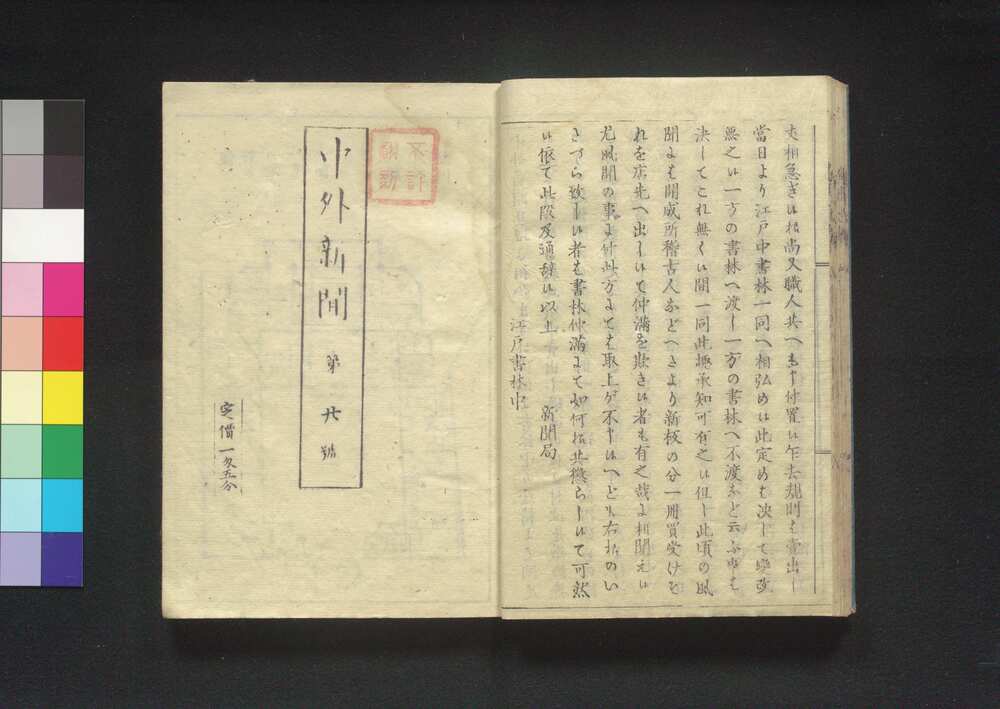 夫相急ぎ候様尚又職人共へも申付置候乍去規則も壹出し
當日より江戸中書林一同へ相弘め候此定めも決して變改
無之候一方の書林へ渡し一方の書林へ不渡など云ふ事も
決してこれ無く候間一同此趣承知可有之候但し此頃の風
聞よも開成所稽古人などへさより新板の分一冊買受けそ
れを店先へ出し候て仲満を欺き候者も有之哉よ相聞え候
尤風聞の事よ付此方よても取上げ不申候へども右様のい
さづら致し候者も書林仲満よて如何様共懲らし候て可然
候依て此段及通辞候以上
新聞局
江戸書林中
不許
翻刻
中外新聞
第廿號
定價一匁五分